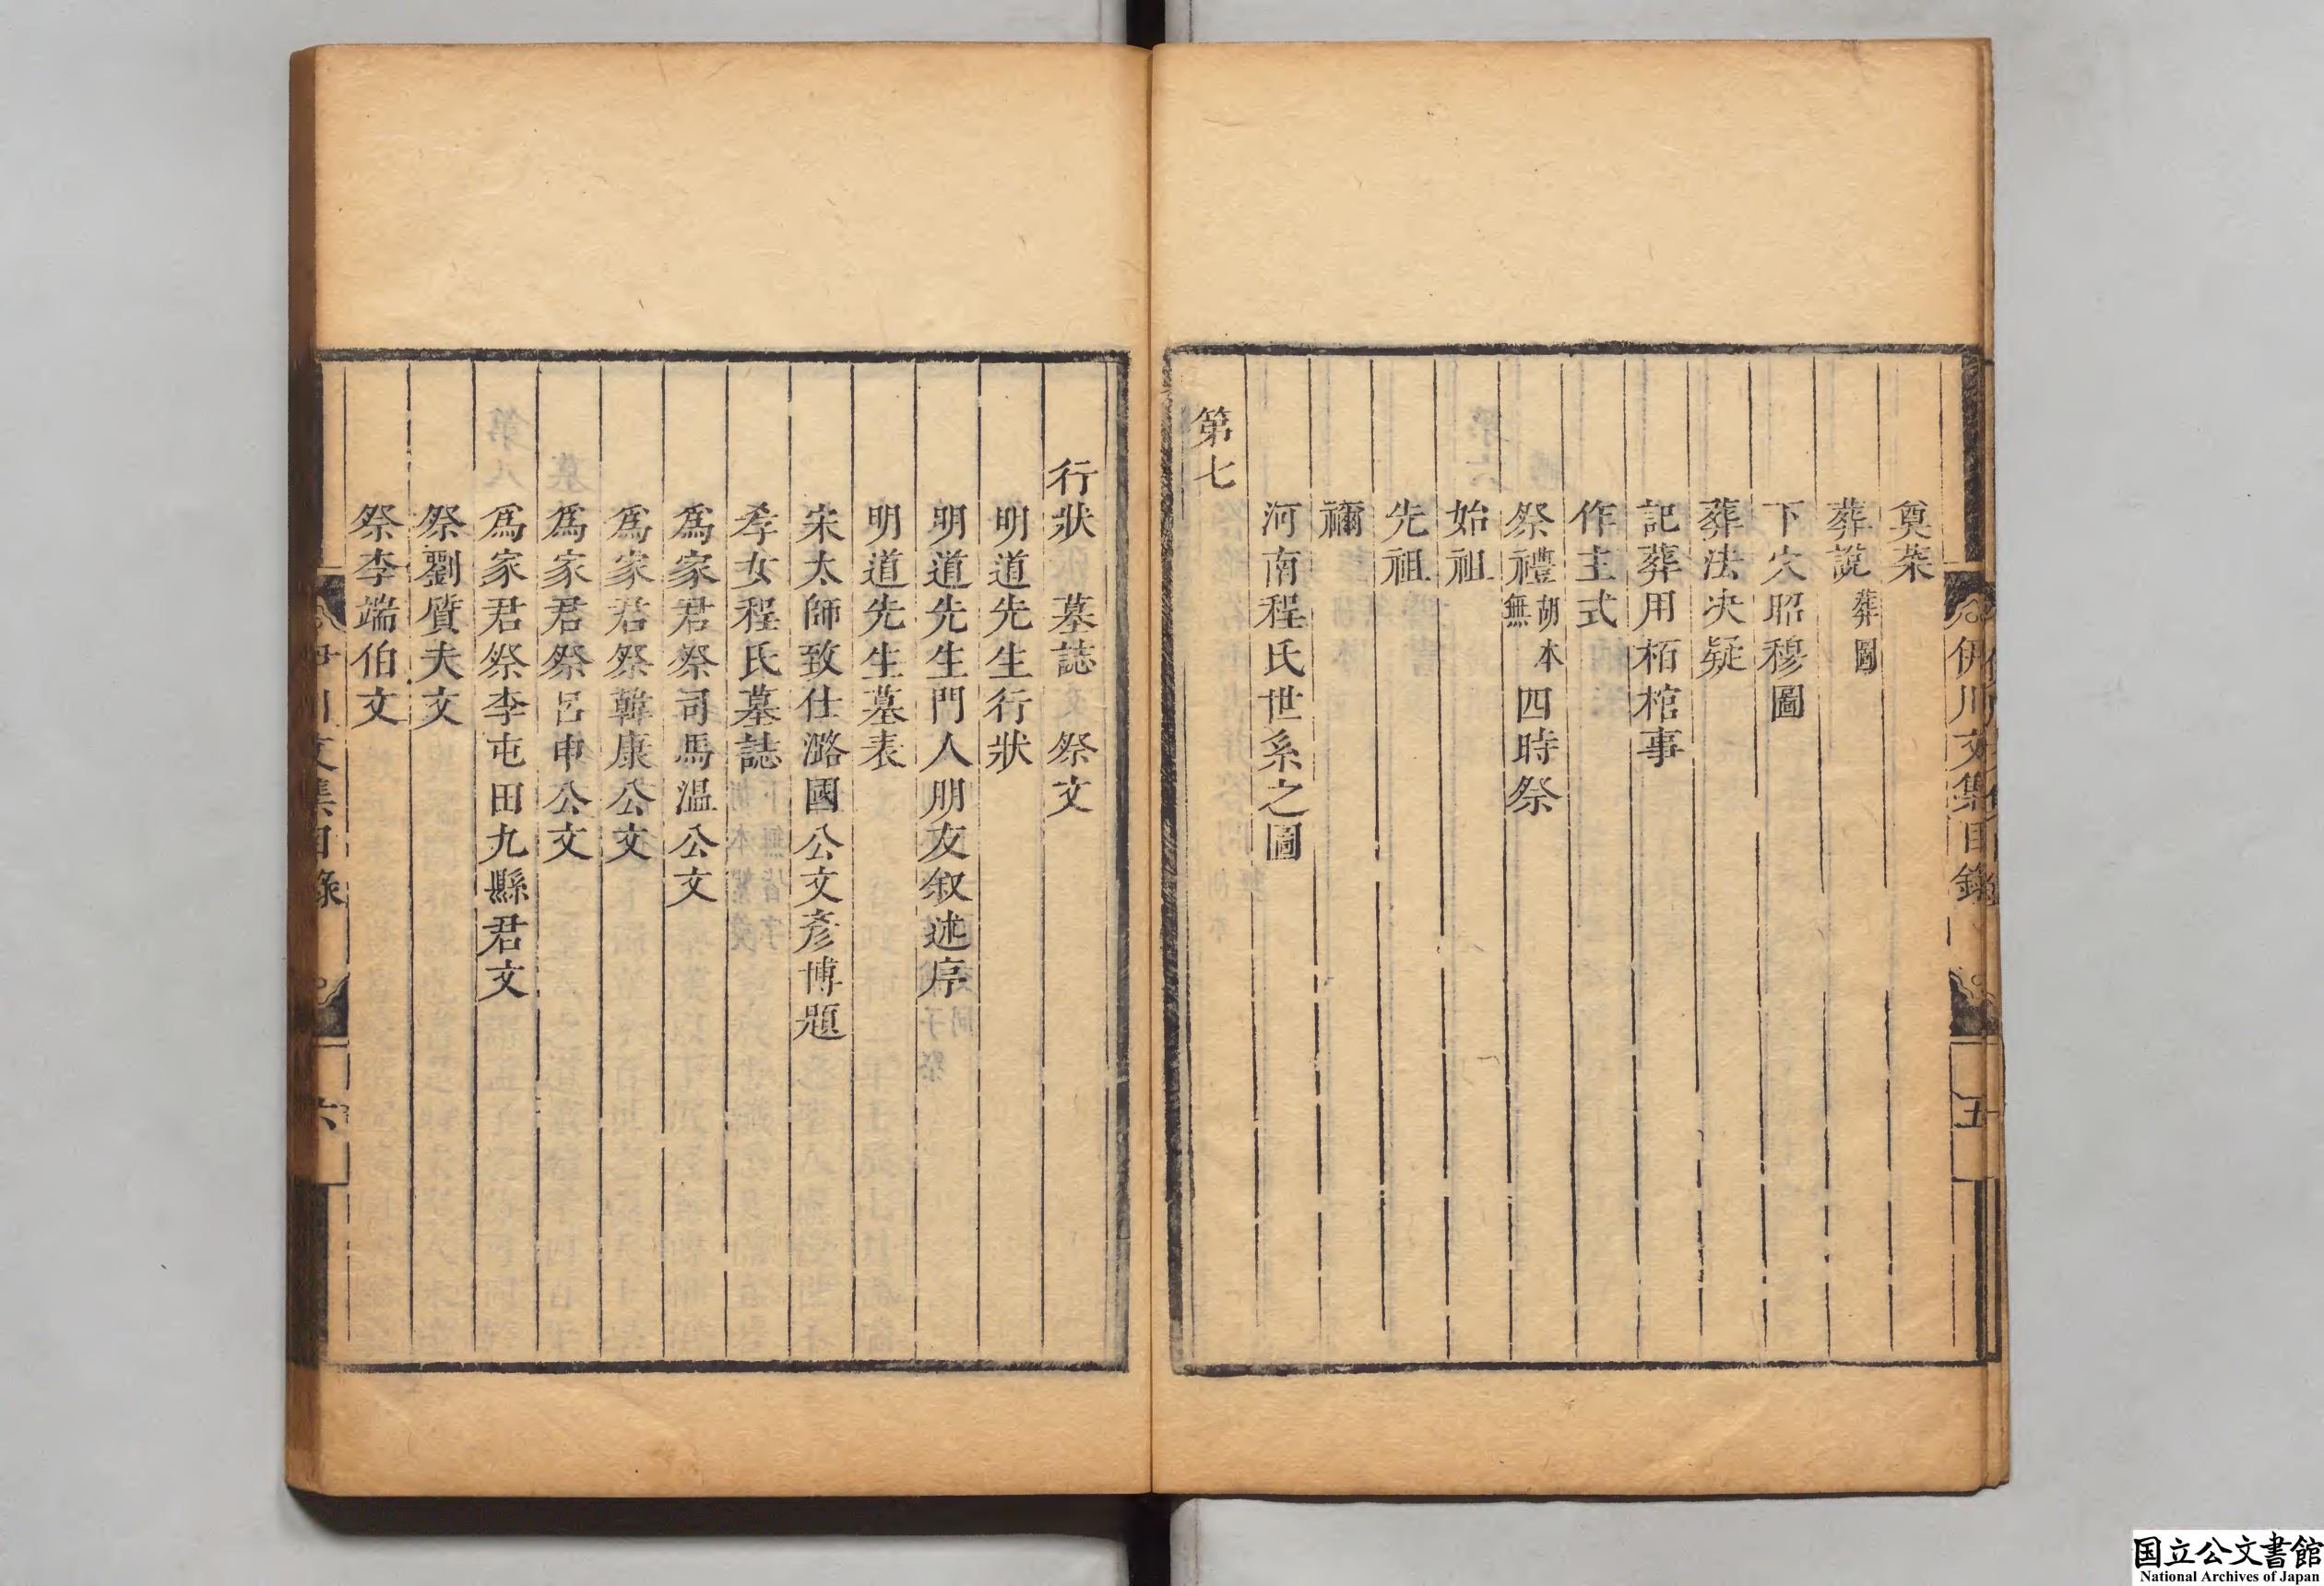 伊川文集目錄
五
奠菜
葬說 葬圖
下穴昭穆圖
葬法決疑
記葬用栢棺事
作主式
祭禮 胡本無 四時祭
始祖
先祖
禰
河南程氏世系之圖
第七
行狀 墓誌 祭文
明道先生行狀
明道先生門人朋友叙述序
明道先生墓表
宋太師致仕潞國公文彥博題
孝女程氏墓誌
爲家君祭司馬溫公文
爲家君祭韓康公文
爲家君祭呂申公文
爲家君祭李屯田九縣君文
祭劉質夫文
祭李端伯文
伊川文集目錄
六
国立公文書館
National Archives of Japan